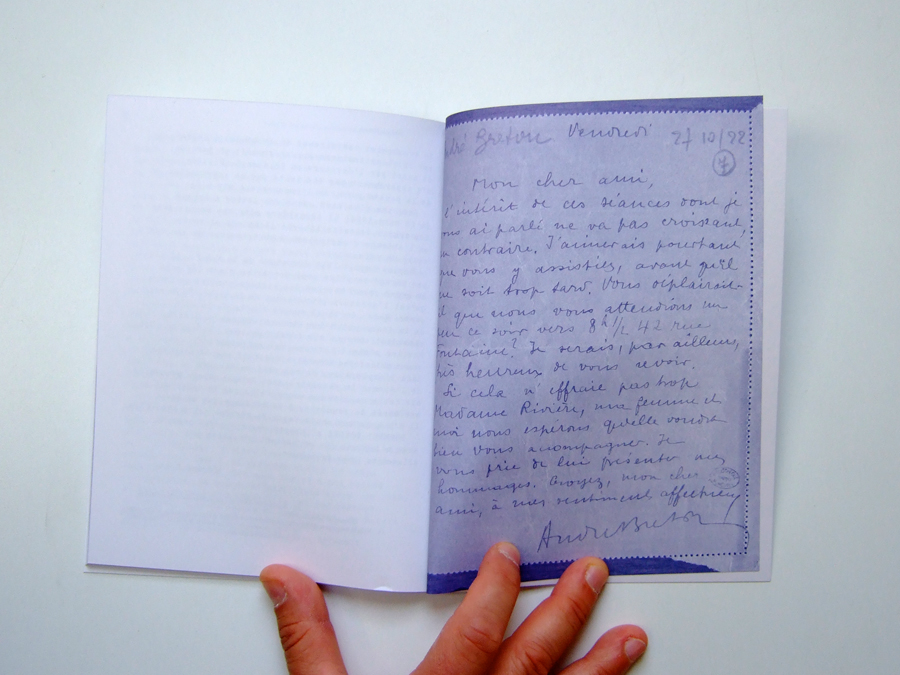 dré Breton Vendredi 27/10/22
7
Mon cher ami,
l'intérêt de ces séances dont je
ous ai parlé ne va pas croissant,
au contraire. J'aimerais pourtant
que vous y assistiez, avant qu'il
ne soit trop tard. Vous déplairait-
il que nous vous attendions un
ce soir vers 8h 1/2 42 rue
Fontaine? Je serais, par ailleurs,
très heureux de vous revoir.
Si cela n'effraie pas trop
Madame Rivière, ma femme et
moi nous espérons qu'elle voudra
bien vous accompagner. Je
vous prie de lui présenter mes
hommages. Croyez, mon cher
ami, à mes sentiments affectueux
André Breton